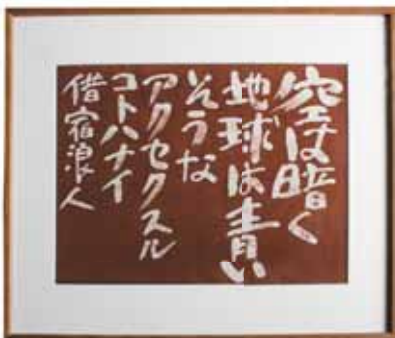 空は暗く
地球は青い
そうな
アクセクスル
コトハナイ
借宿浪人